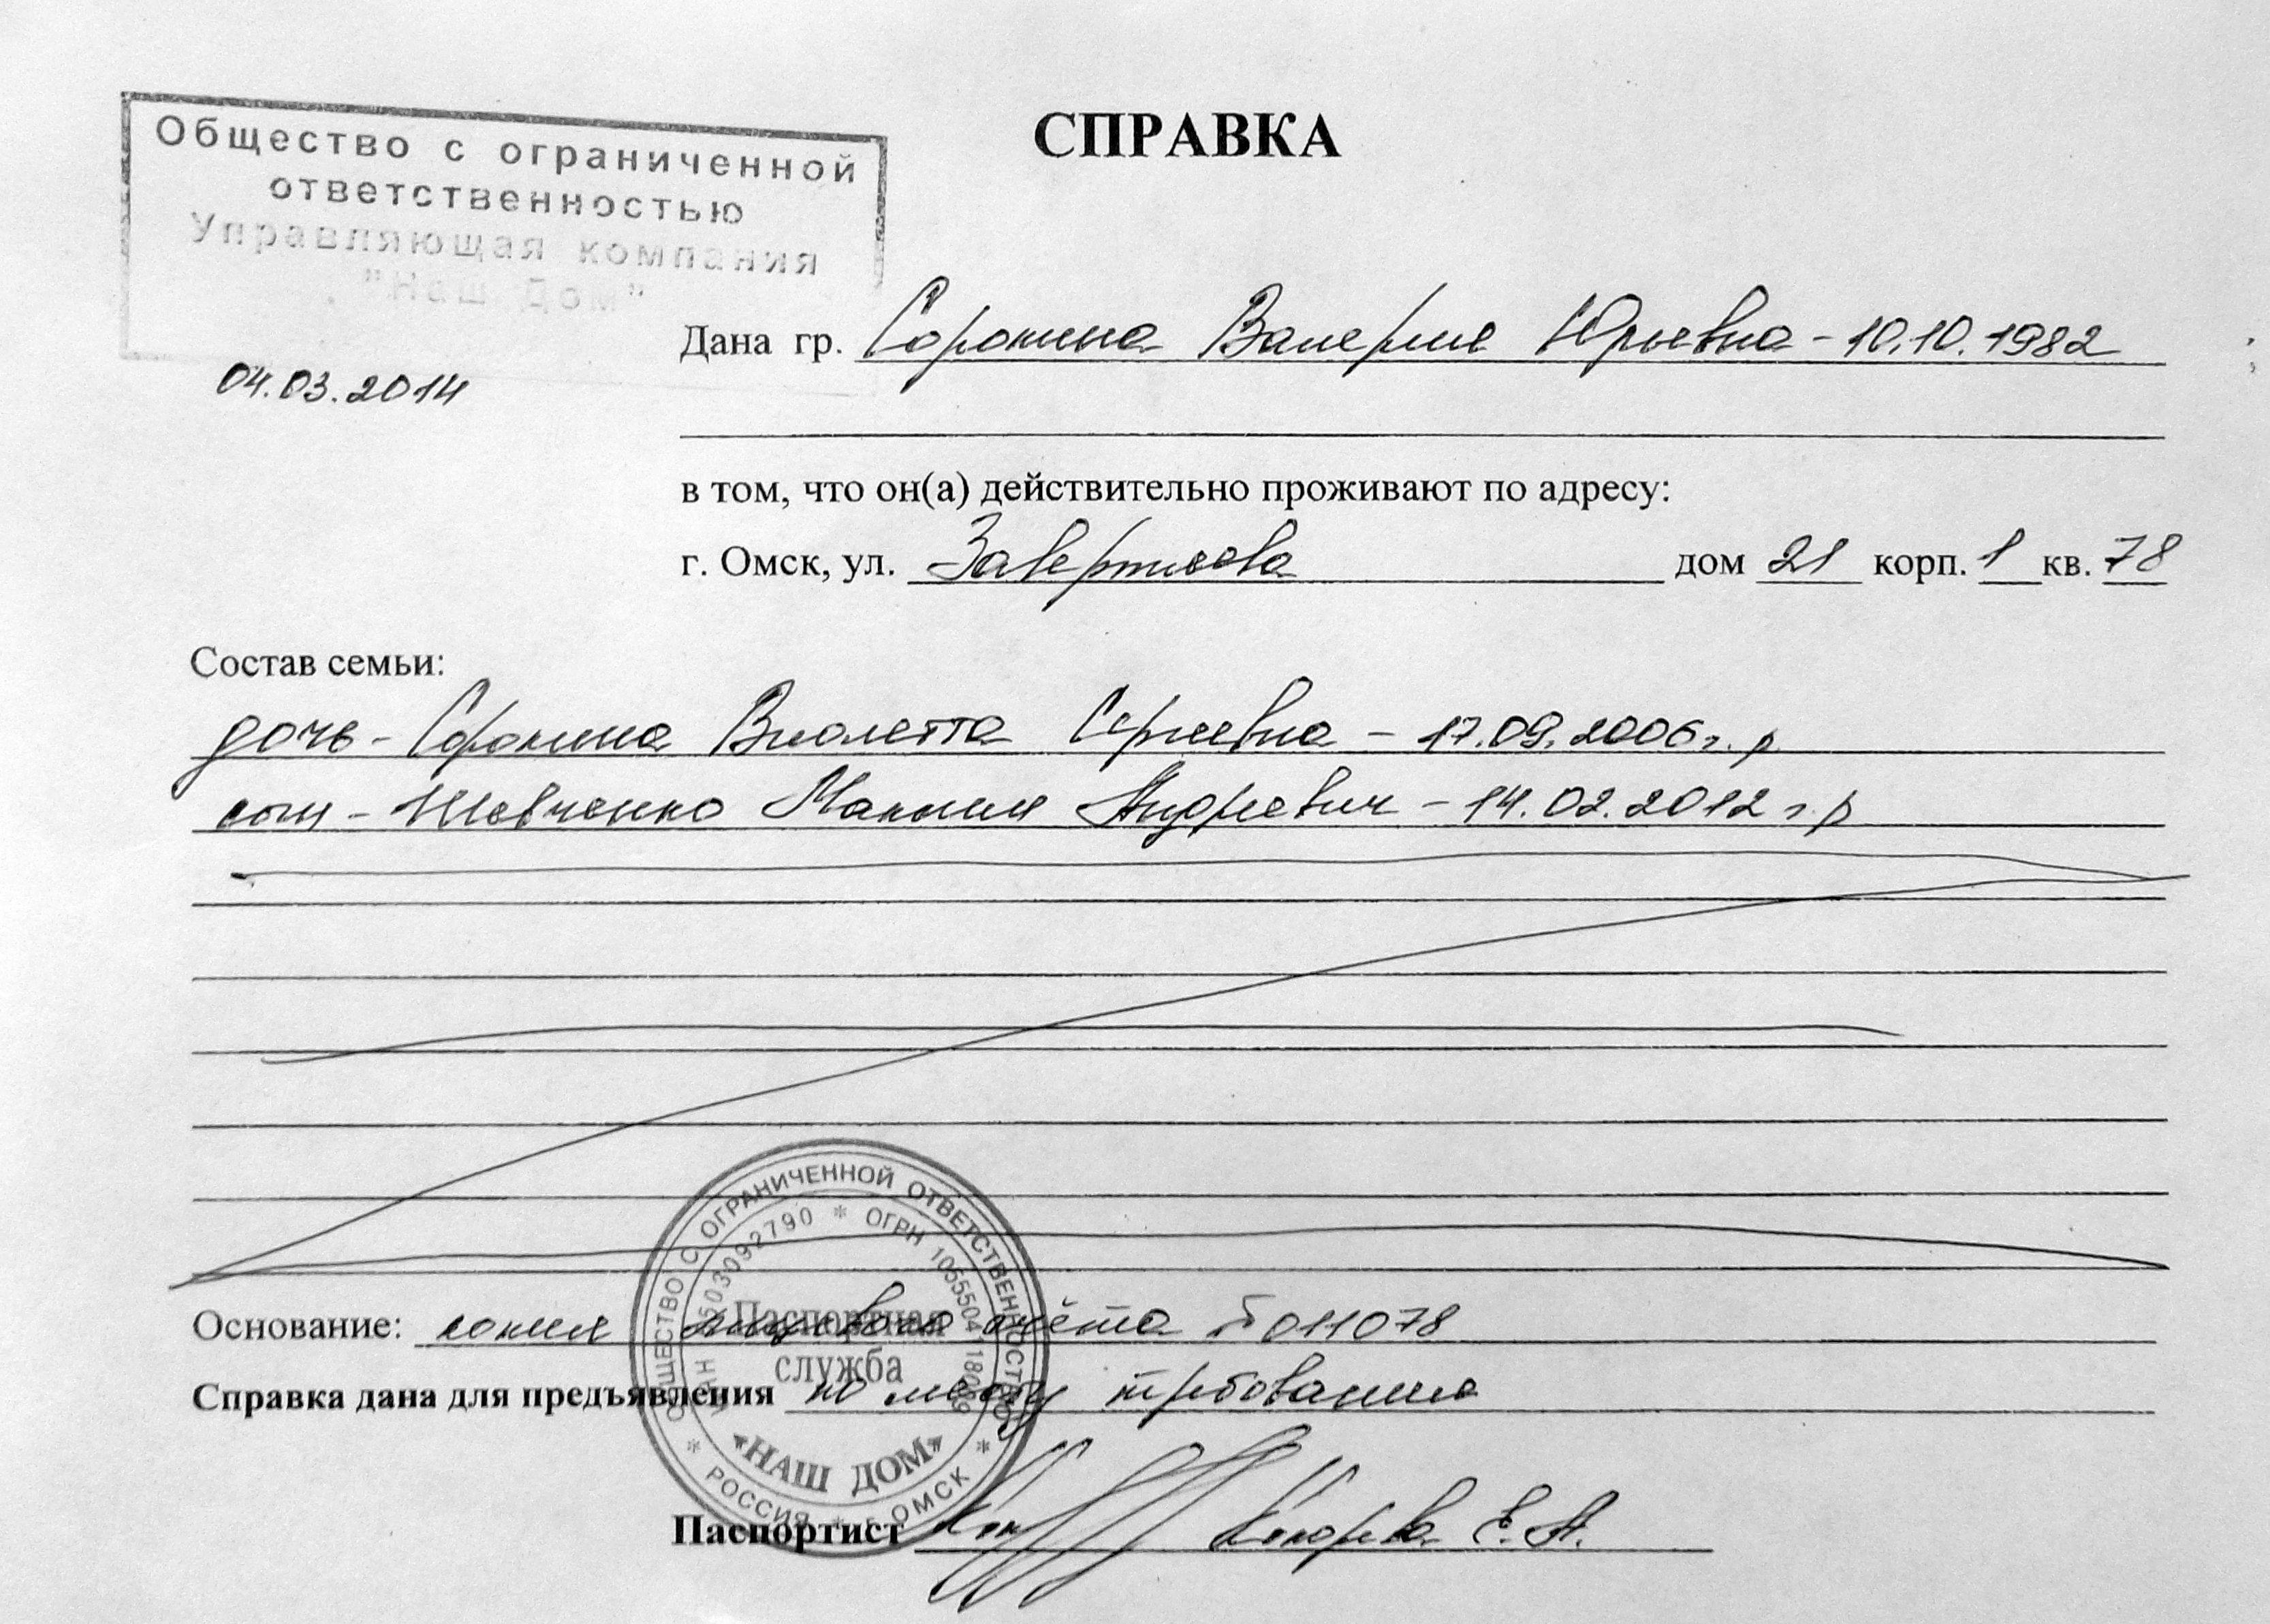 Общество с ограниченной
ответственностью
Управляющая компания
"Наш Дом"
04.03.2014
СПРАВКА
Дана гр. Сорокина Валерия Юрьевна - 10.10.1982
в том, что он(а) действительно проживают по адресу:
г. Омск, ул. Завертяева дом 21 корп. 1 кв. 78
Состав семьи:
дочь - Сорокина Виолетта Сергеевна - 17.09.2006 г.р
сын - Шевченко Максим Андреевич - 14.02.2012 г.р
Основание: копия лицевого счёта 5011078
Справка дана для предъявления по месту требования
Паспортист Кокорева Е.А.
ОБЩЕСТВО С ОГРАНИЧЕННОЙ ОТВЕТСТВЕННОСТЬЮ
ИНН 5503092790 * ОГРН
Паспортная
служба
«НАШ ДОМ»
* РОССИЯ * г. ОМСК *